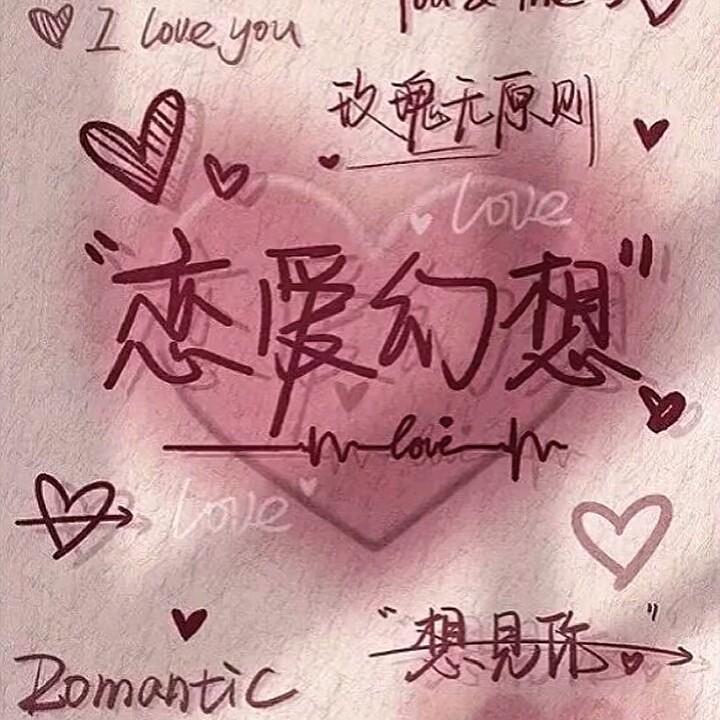 I love you
You & me
玫瑰无原则
love
"恋爱幻想"
love
love
"想见你"
Romantic